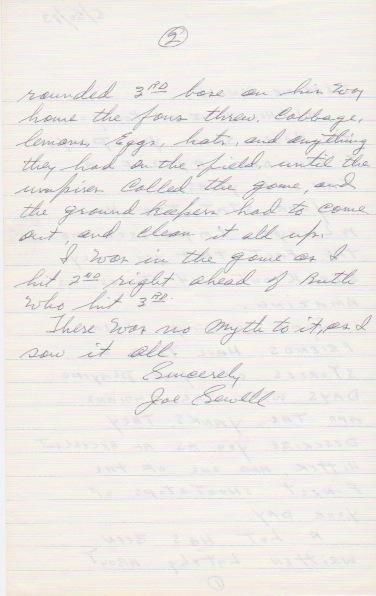 ②
rounded 3RD base on his way
home the fans threw, Cabbage,
lemons, Eggs, hats, and anything
they had on the field until the
umpires Called the game, and
the ground keepers had to come
out, and clean it all up.
I was in the game as I
hit 2ND right ahead of Ruth
Who hit 3RD.
There was no myth to it, as I
saw it all.
Sincerely
Joe Sewell